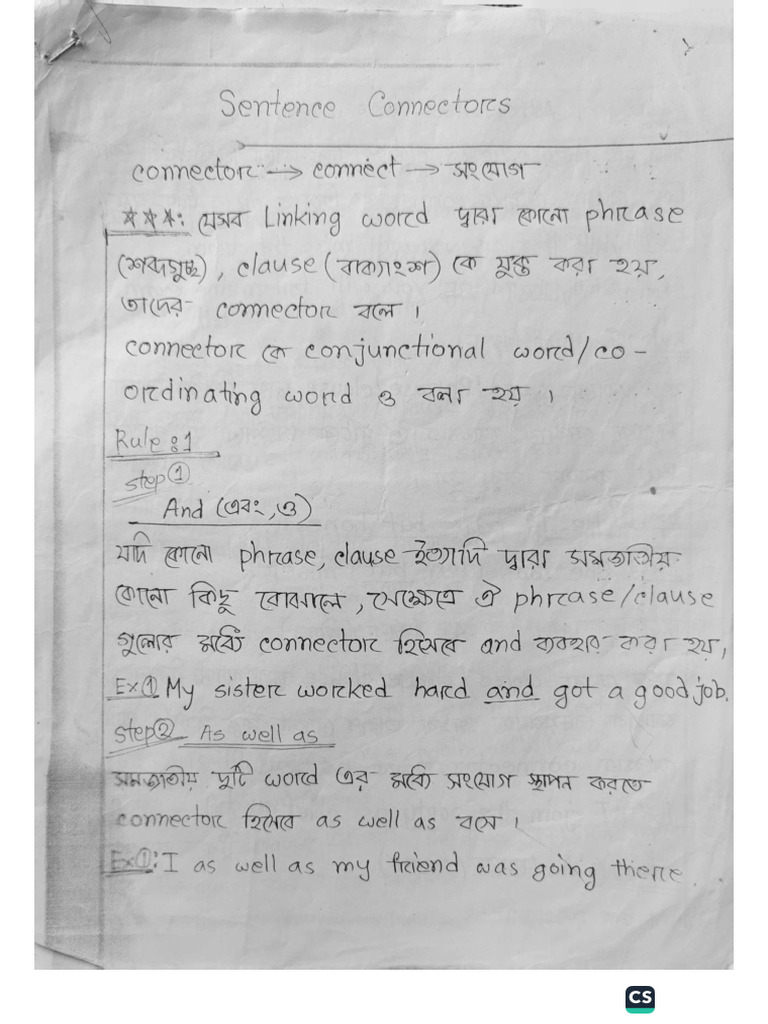 Sentence Connectors
connector → connect → সংযোগ
***: যেসব Linking word দ্বারা কোনো phrase
(শব্দগুচ্ছ), clause (বাক্যাংশ) কে যুক্ত করা হয়,
তাদের connector বলে।
connector কে conjunctional word/co-
ordinating word ও বলা হয়।
Rule:1
step①
And (এবং, ও)
যদি কোনো phrase, clause ইত্যাদি দ্বারা সমজাতীয়
কোনো কিছু বোঝালে, সেক্ষেত্রে ঐ phrase/clause
গুলোর মধ্যে connector হিসেবে and ব্যবহার করা হয়,
Ex① My sister worked hard and got a good job.
step② As well as
সমজাতীয় দুটি word এর মধ্যে সংযোগ স্থাপন করতে
connector হিসেবে as well as বসে।
Ex①: I as well as my friend was going there.
CS